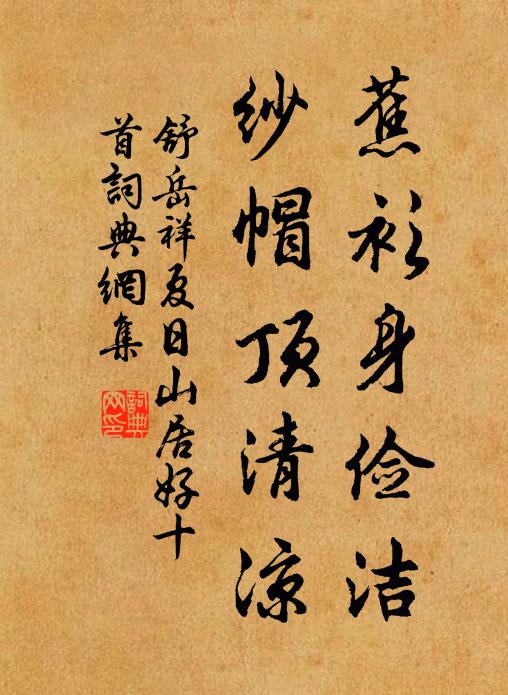 蕉衫身俭洁
纱帽顶清凉
舒岳祥夏日山居好十
首词典網集
詞典
网印